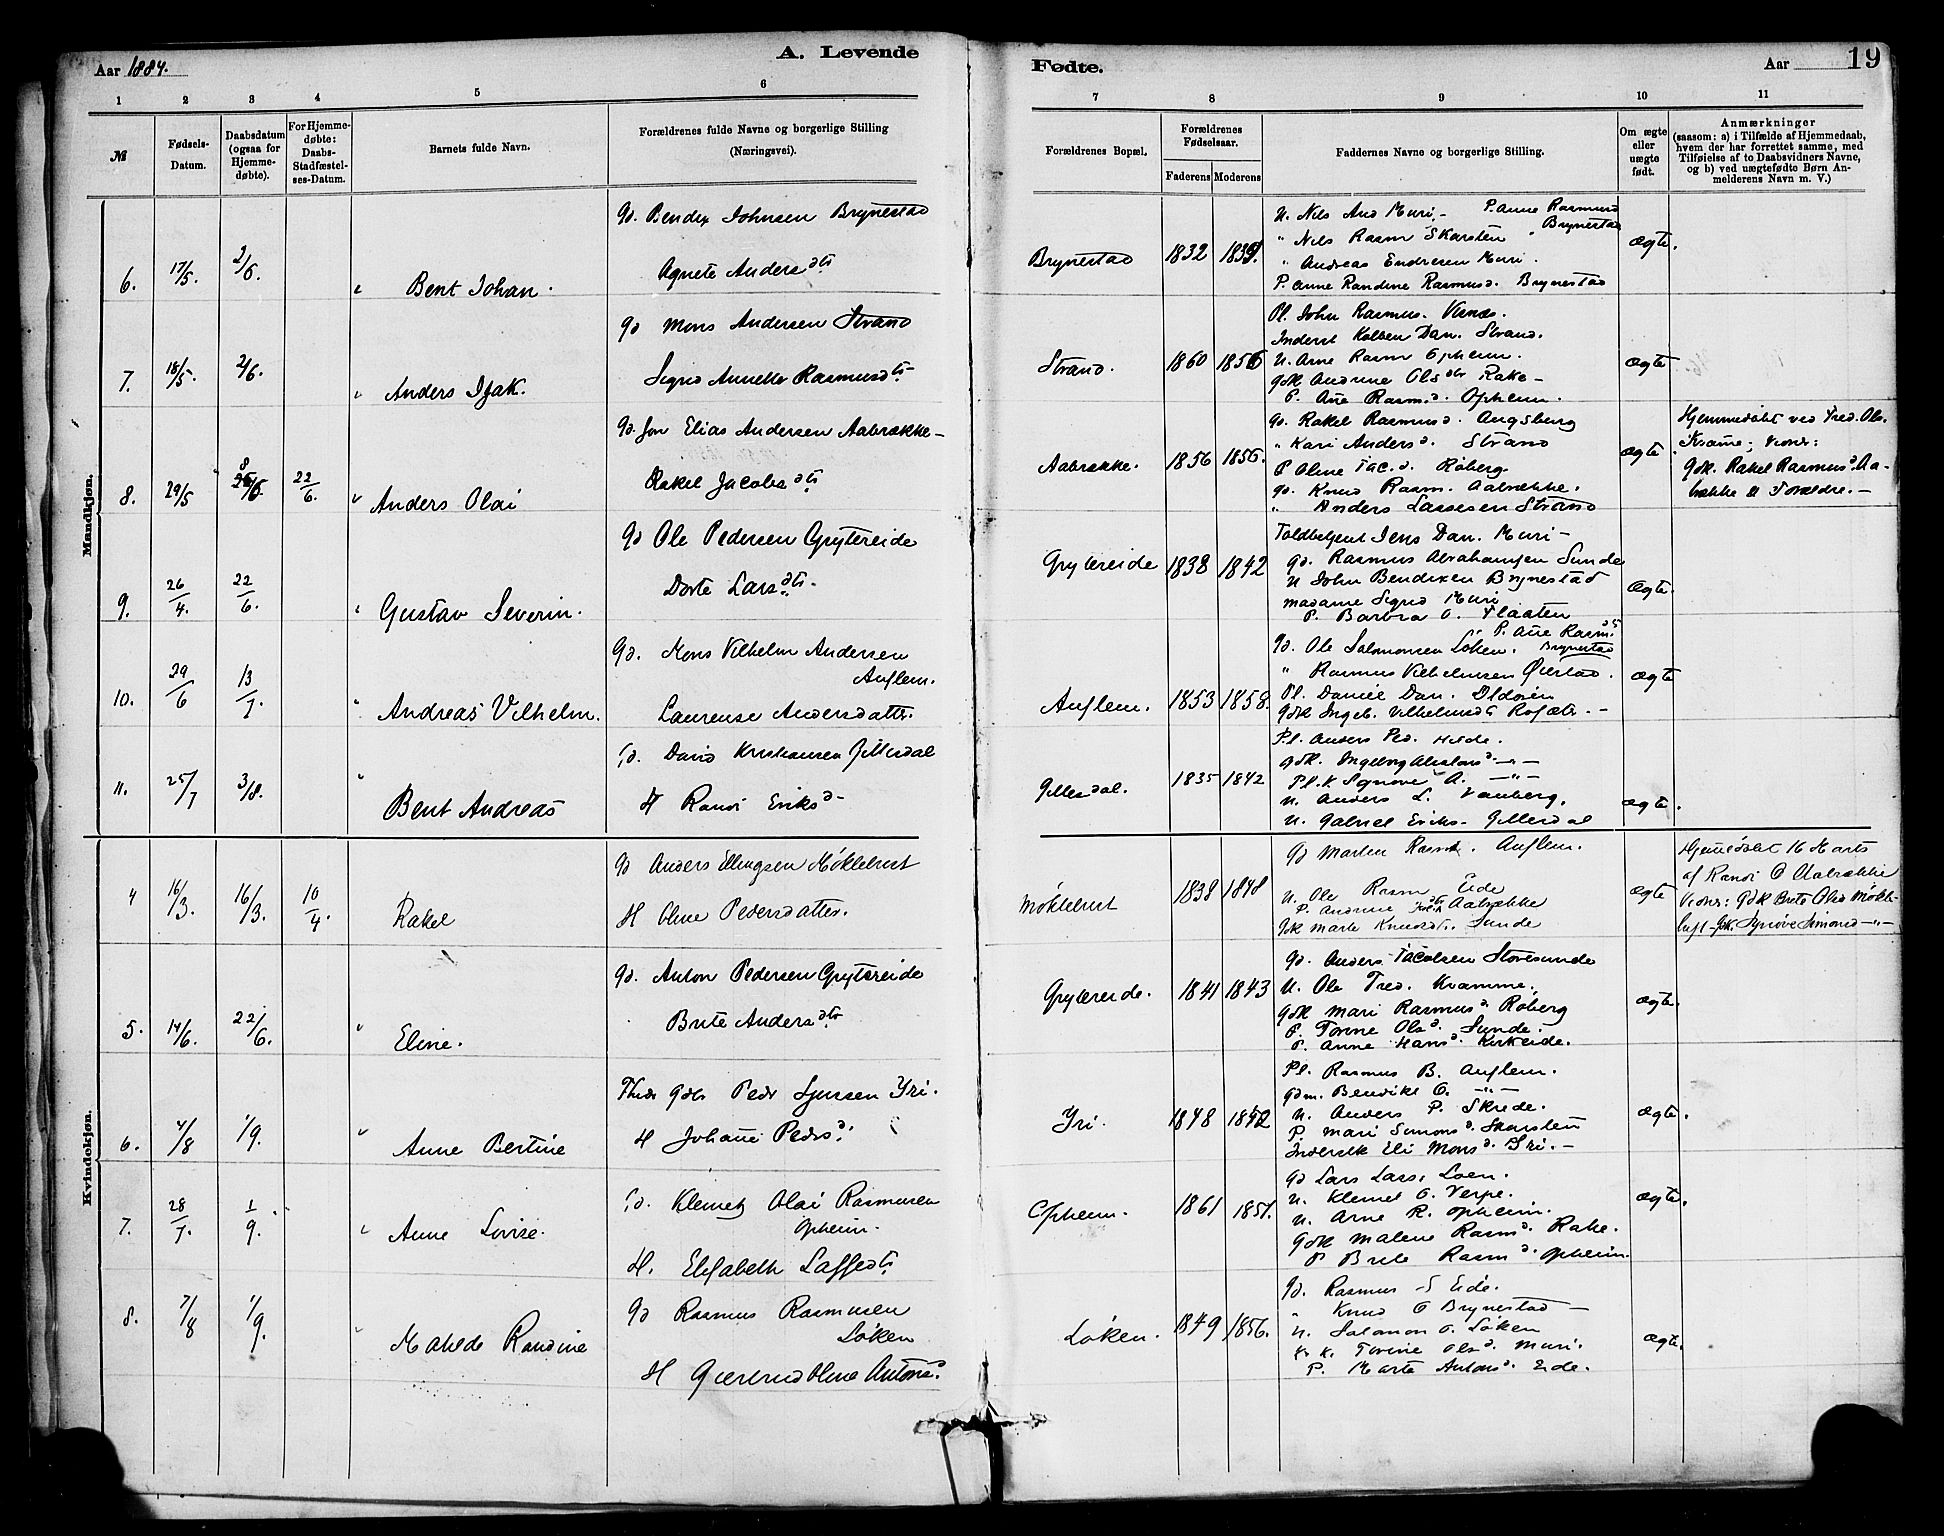 Aar 1884.
A. Levende
1 2 3 4 5 6
№
Fødsels-Datum.
Daabsdatum (ogsaa for Hjemmedøbte).
For Hjemmedøbte: Daabs-Stadfæstelses-Datum.
Barnets fulde Navn.
Forældrenes fulde Navne og borgerlige Stilling (Næringsvei).
Mandkjøn.
Gd. Bendix Johnsen Brynestad
6. 17/5. 2/6. " Bent Johan. Agnete Andersdtr
Gd Mons Andersen Strand
7. 18/5. 2/6. " Anders Isak. Sigrid Annette Rasmusdtr
Gd. Jon Elias Andersen Aabrække
8. 29/5 22/6. " Anders Olai Rakel Jacobsdtr
Gd Ole Pedersen Grytereide
9. 26/4. 22/6. " Gustav Severin. Dorte Larsdtr.
Gd. Mons Vilhelm Andersen
Auflem.
10. 29/6 13/7. " Andreas Vilhelm. Laurense Andersdatter.
Gd. David Kristiansen Gjillesdal
11. 25/7 3/8. " Bent Andreas H Randi Eriksd
Kvindekjøn.
Gd Anders Ellingsen Møklebust
4 16/3. 16/3. 10/4. Rakel H Oline Pedersdatter.
Gd. Anton Pedersen Grytereide
5. 14/6. 22/6. " Eline. Brite Andersdtr
Peder Sjursen Yri.
6. 4/8 1/9. " Anne Bertine H Johanne Pedsd.
Gd. Klemet Olai Rasmusen
Opheim.
7. 28/7. 1/9. " Anne Lovise. H. Elisabeth Lassedtr
8. 7/8 1/9. Gd Rasmus Rasmusen
Løken
" Matilde Randine
H Gjertrud Oline Antonsd.
Fødte.
Aar 19
7 8 9 10 11
Forældrenes Bopæl.
Forældrenes Fødselsaar.
Faderens Moderens
Faddernes Navne og borgerlige Stilling.
Om ægte eller uægte født.
Anmærkninger
(saasom: a) i Tilfælde af Hjemmedaab, hvem der har forrettet samme, med Tilføielse af to Daabsvidners Navne, og b) ved uægtefødte Børn Anmelderens Navn m. V.)
U. Nils And Muri. P. Anne Rasmusd Brynestad
" Nils Rasm Skarsten
Brynestad 1832 1839. " Andreas Endresen Muri. Ægte.
P. Anne Randine Rasmusd. Brynestad
Pl. John Rasmus.
Inderst Kolben Dan. Strand.
Strand. 1860 1856 U. Arne Rasm Opheim. Ægte
Gdk Andrine Olsdtr Rake
P. Ane Rasm.d. Opheim.
Gd. Rakel Rasmusd. Augsburg
" Kari Andersd. Strand
Aabrække. 1856 1856. P Oline Jac.d. Røberg. Ægte
Gd. Knud Rasm. Aabrække.
" Anders Lassesen Strand
Hjemmedøbt ved Fred. Ols.
Kvame; Vidner:
Gdk. Rakel Rasmusd. Aa-
brække & Forældre.
Toldbetjent Jens Dan. Muri
Grytereide 1838 1842 Gd. Rasmus Abrahamsen Sunde
U John Bendixen Brynestad Ægte.
Madame Sigrid Muri
P. Barbra O. Flaaten
P. Ane Rasmdtr Brynestad
Gd. Ole Salomonsen Løken.
" Rasmus Vilhelmsen Øvrstad.
Auflem. 1853 1858. Pl. Daniel Dan. Oldøren Ægte
Gdk Ingeb. Vilhelmsdtr
Pl. Anders Ped. Hilde.
Gdk. Ingeborg
Gjillesdal. 1835 1842 Synøve A. —"—
U. Anders L. Vanberg. Ægte.
U. Gabriel Eriks. Gjillesdal
Gd Marten Rasm. Auflem.
Møklebust 1838 1848 U. Ole Rasm Eide Ægte
P. Andrine Aabrække
Gdk Marte Knudsdt. Sunde
Hjemmedøbt 16 Marts
af Randi O Aabrække
Vidner: Gdk Brite Olsd Møkle-
bust - Gdk. Synøve Simonsd —"—
Gd. Anders Jacobsen Storesunde
Grytereide. 1841 1843 U. Ole Fred. Kvamme.
Gdk Mari Rasmusd. Røberg Ægte.
P. Torine Olsd. Sunde.
P. Anne Hansd. Kirkeide.
Pl. Rasmus B. Auflem.
Gdm. Bendikt O. —"—
Yri. 1848 1842 U. Anders P. Skrede. Ægte.
P. Mari Simonsd. Skarsten
Eli Monsd. Yri.
Gd Lars Lars. Loen.
Opheim. 1861 1857. U. Klemet O. Verpe. Ægte.
U. Arne R. Opheim.
Gdk Malene Rasmd. Rake.
P Brite Rasmd. Opheim.
Gd. Rasmus S Eide.
" Knud O Brynestad
Løken. 1849 1856. U. Salomon O. Løken Ægte.
Torine Olsd. Muri.
P. Marte Antonsd. Eide.